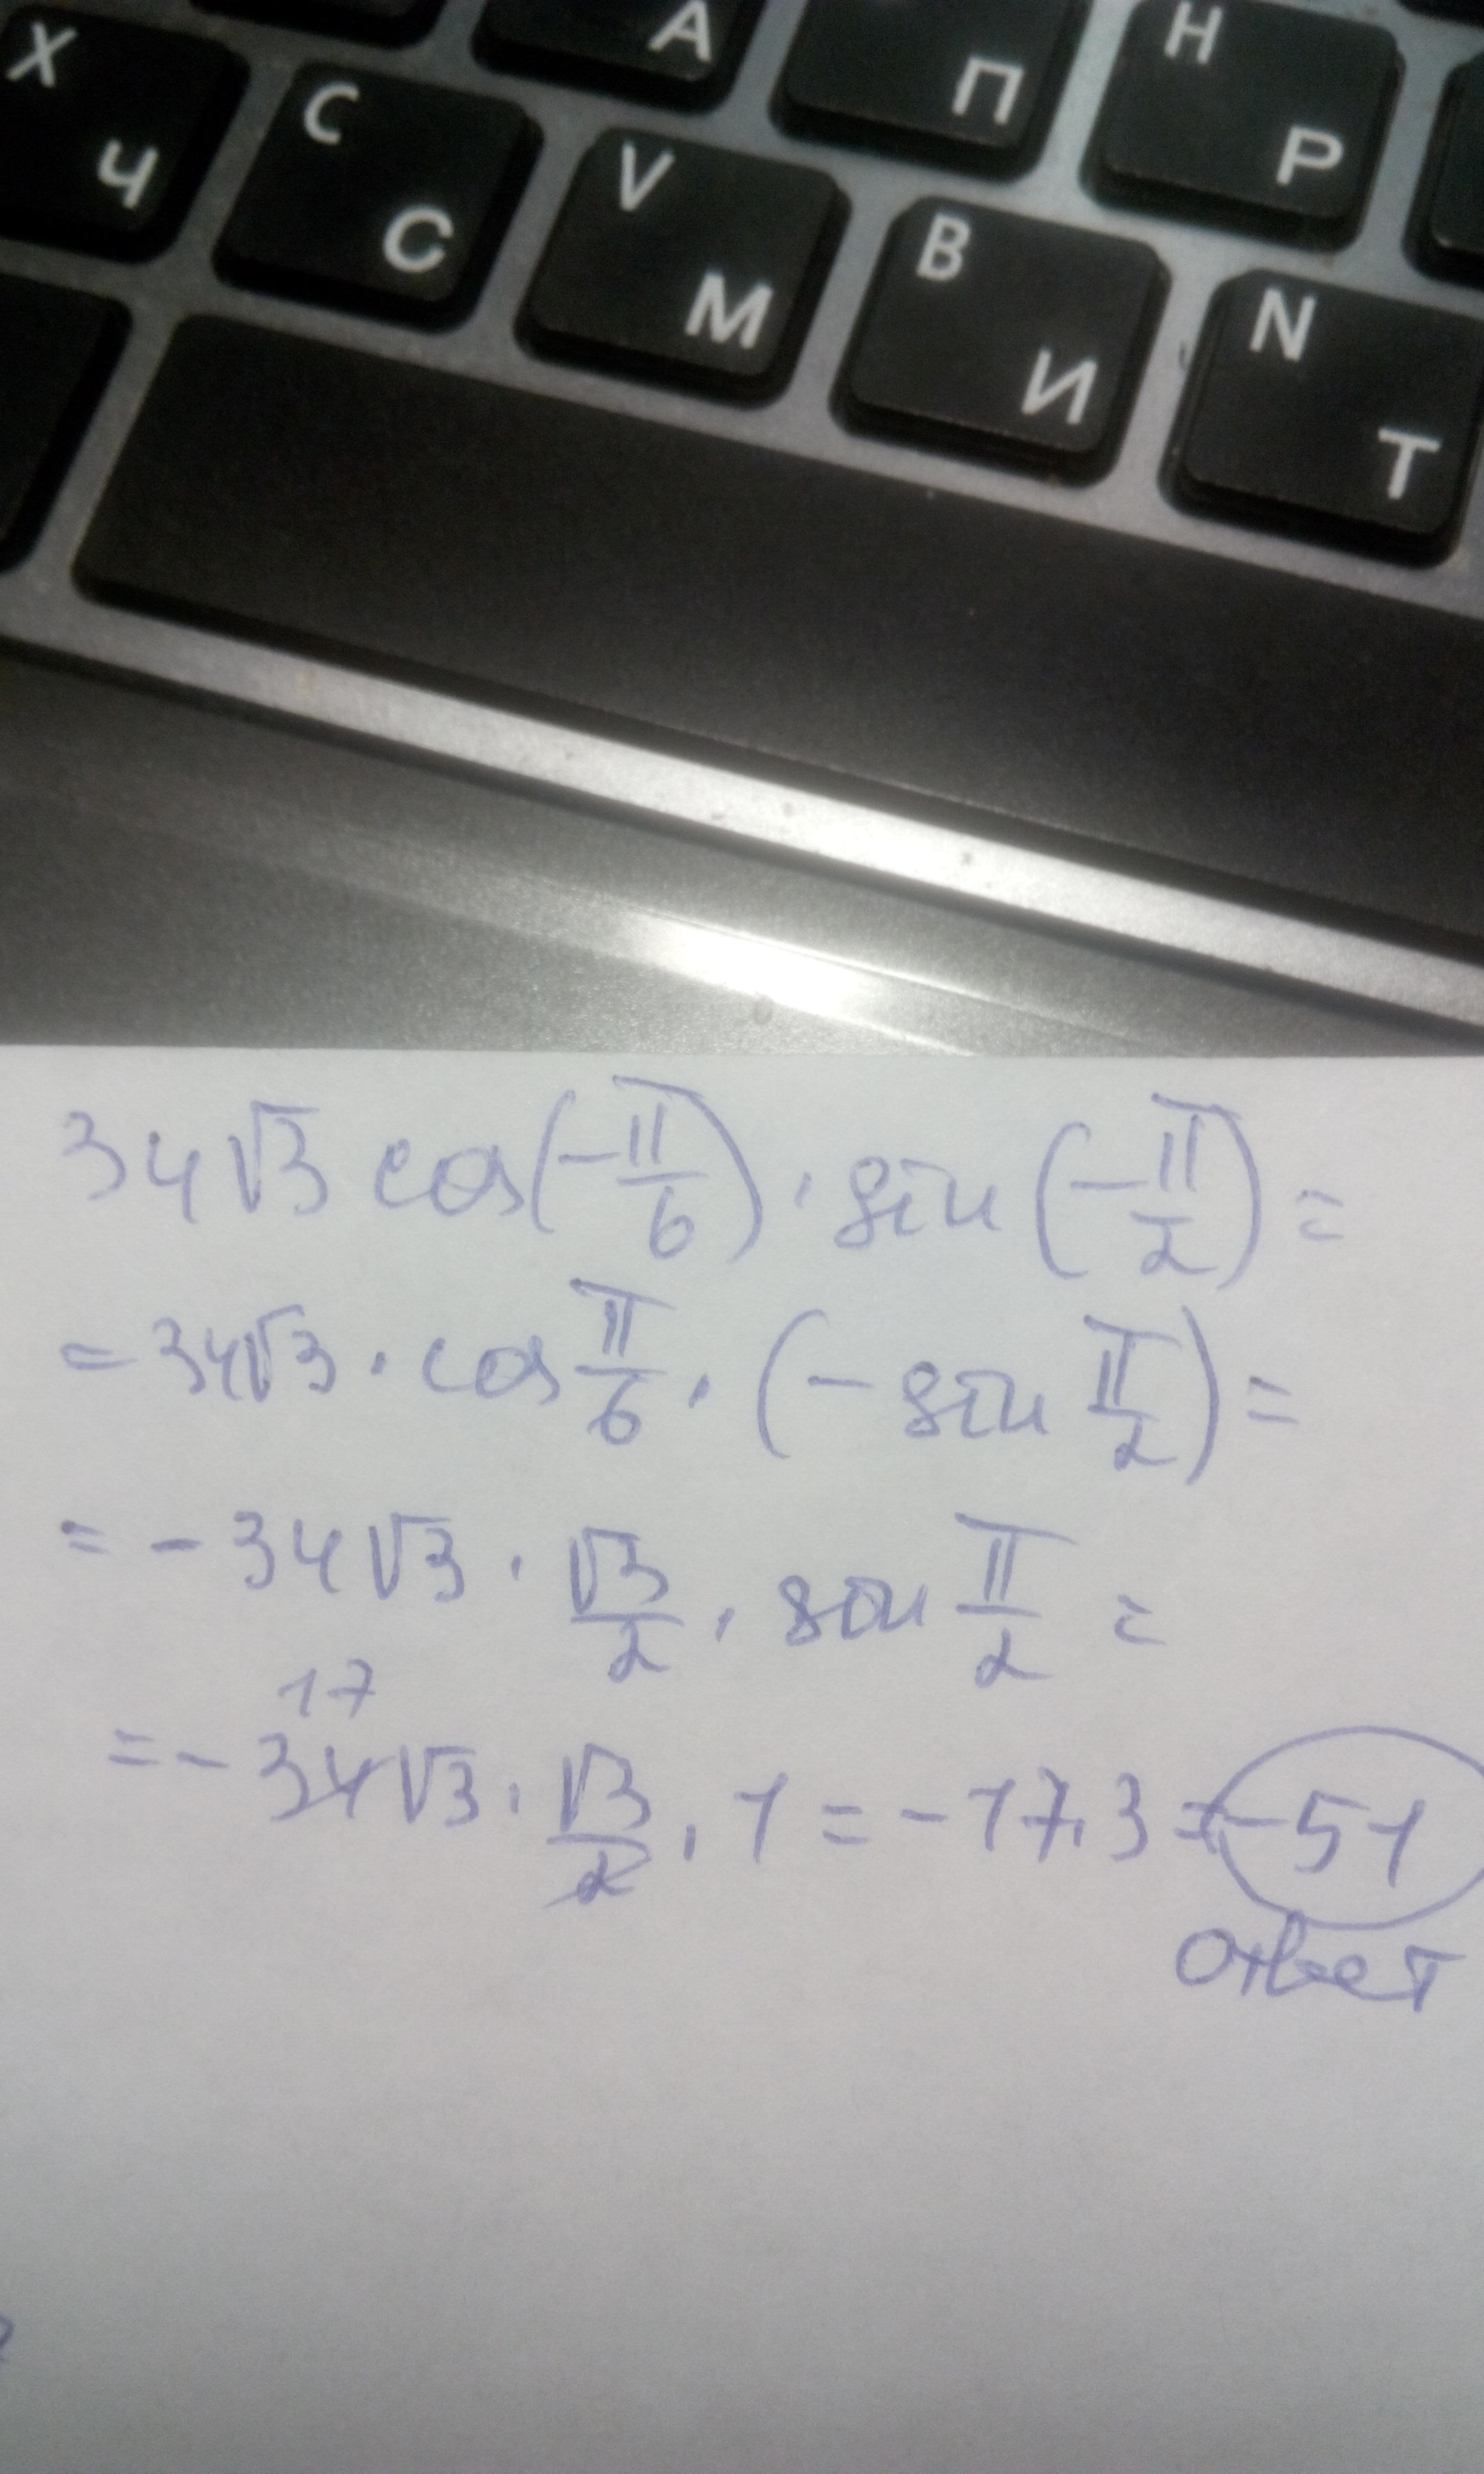 А П Н
Х Ч C С V М B И N Т Р
34√3 cos(-π/6) · sin(-π/2) =
= 34√3 · cos π/6 · (- sin π/2) =
= - 34√3 · √3/2 · sin π/2 =
17
= - 34√3 · √3/2 · 1 = - 17 · 3 = -51
ответ